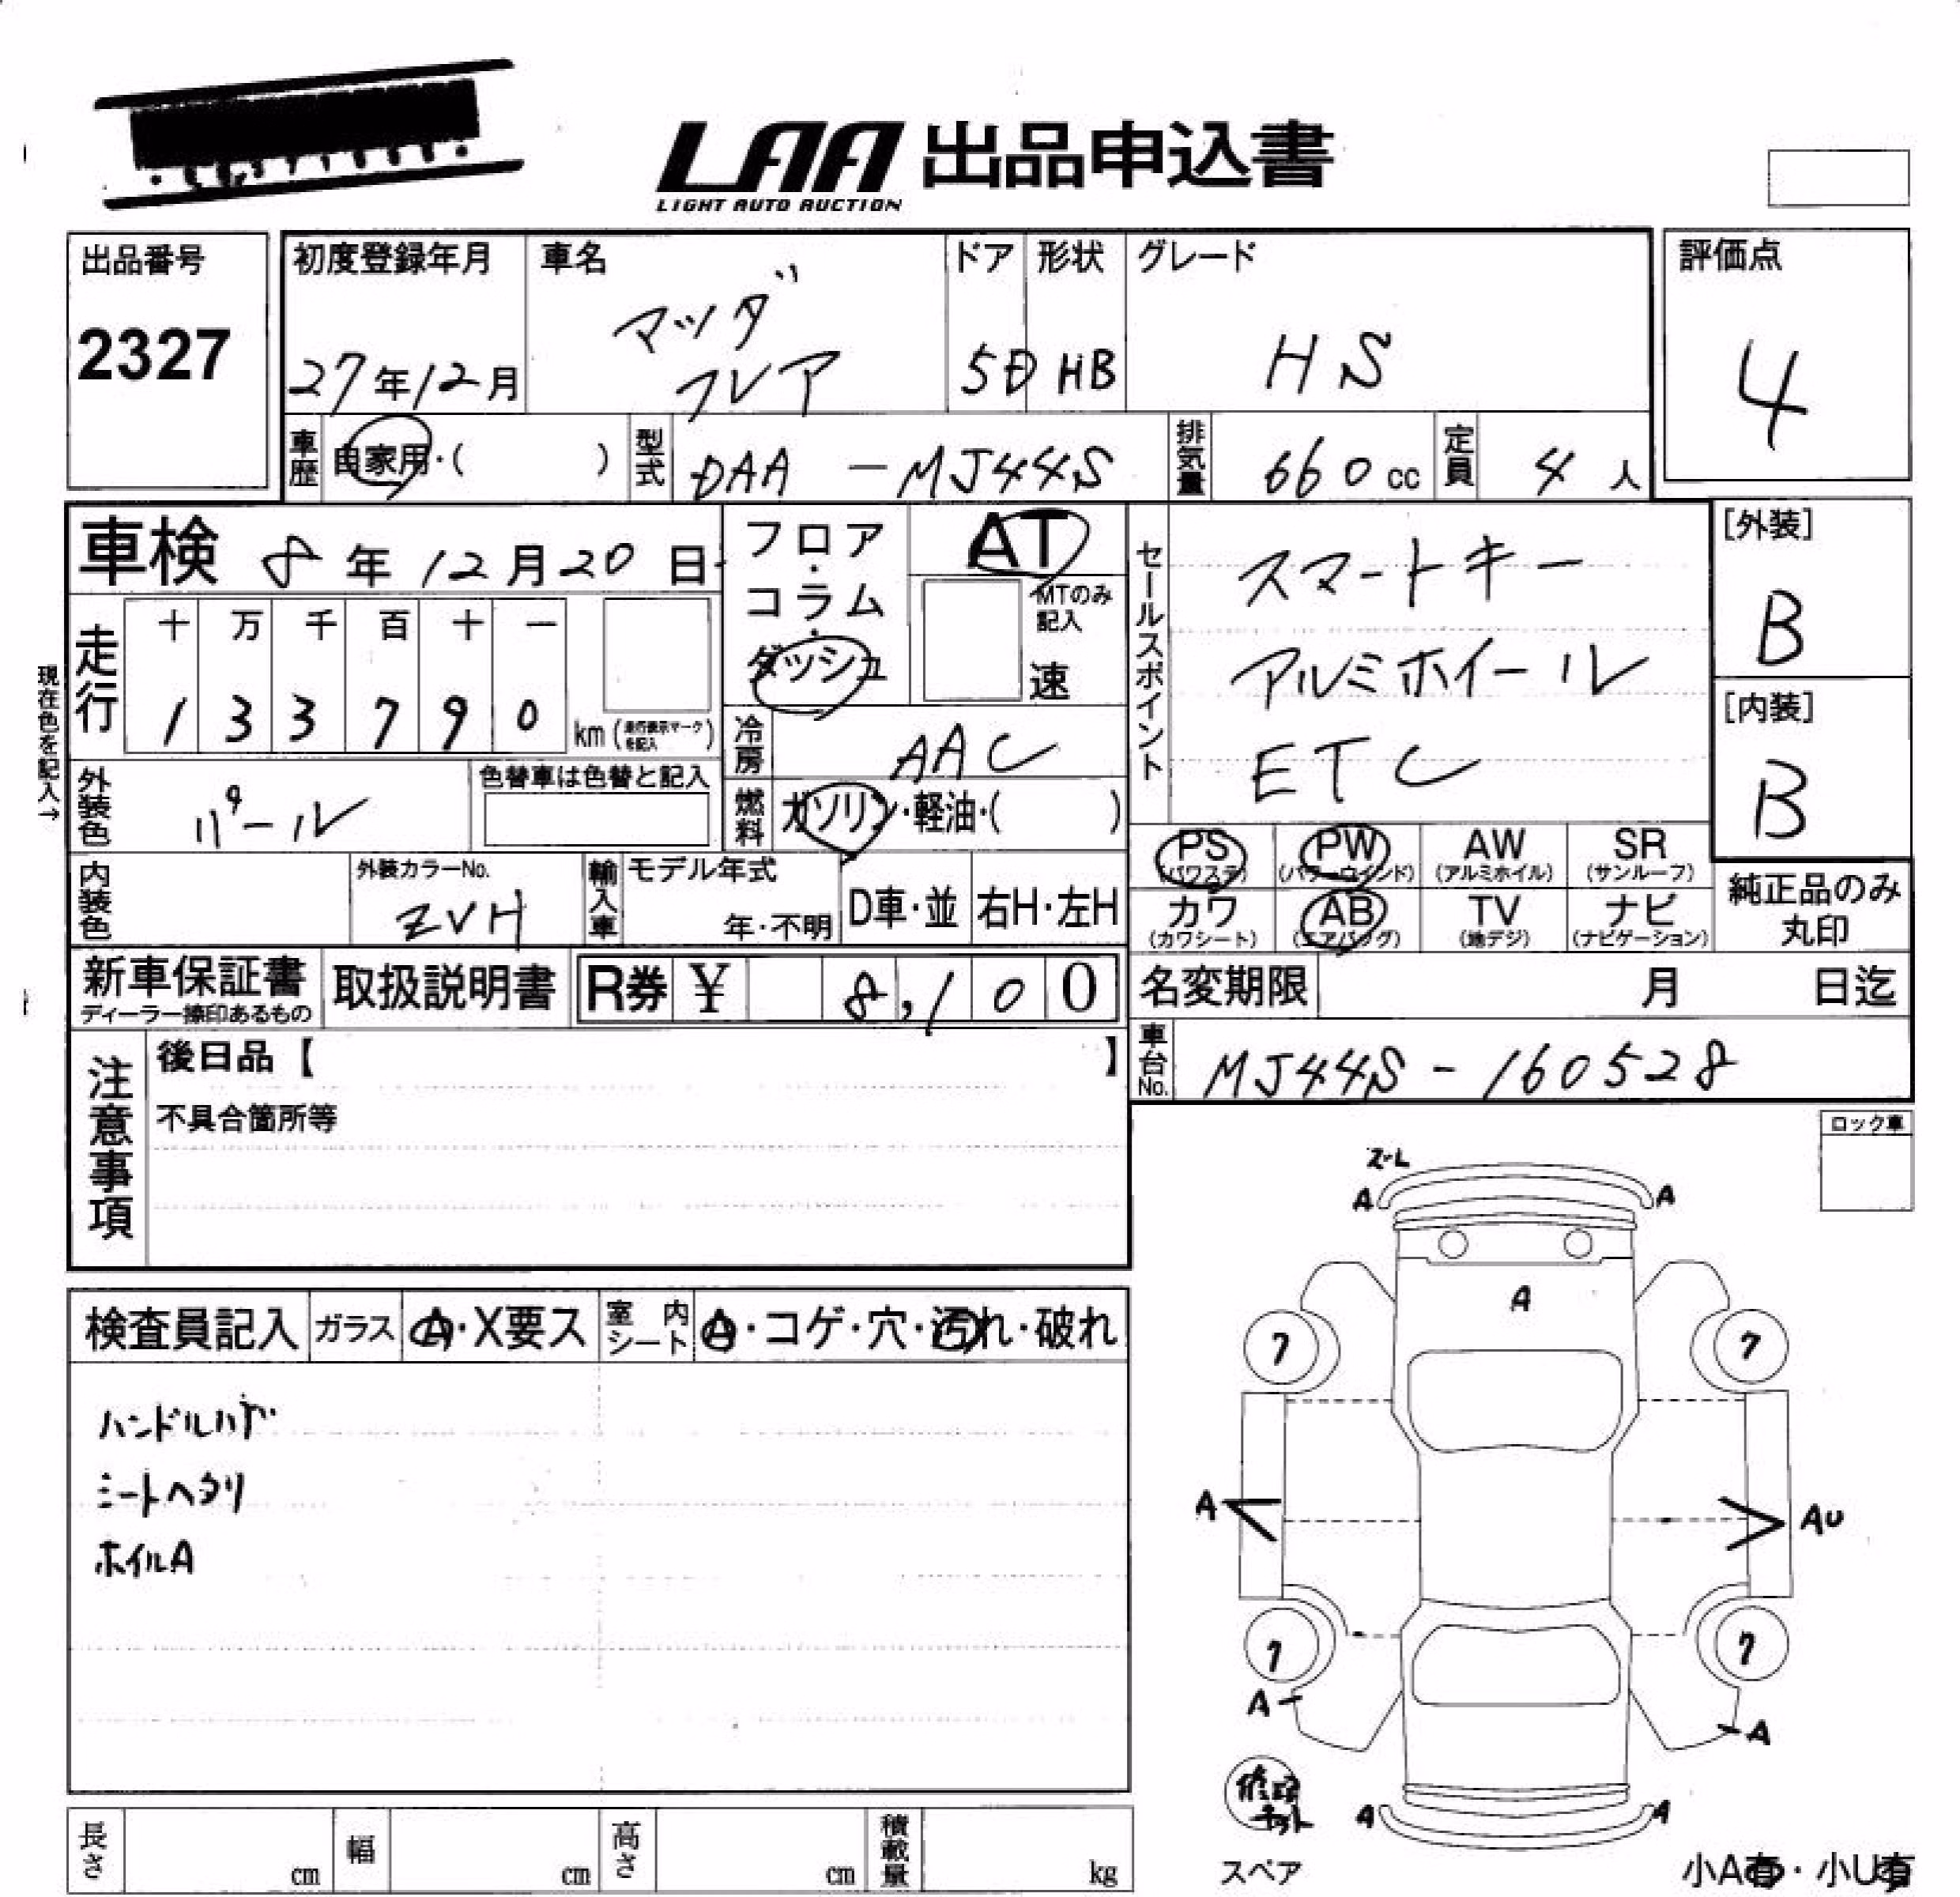 LAA 出品申込書
LIGHT AUTO AUCTION
出品番号
2327
初度登録年月
27年12月
車名
マツダ
フレア
ドア
5D
形状
HB
グレード
HS
評価点
4
車歴
自家用・( )
型式
DAA-MJ44S
排気量
660cc
定員
4人
車検 8年12月20日
フロア・
コラム・
ダッシュ
AT
MTのみ
記入
速
セールスポイント
スマートキー
アルミホイール
ETC
[外装]
B
[内装]
B
現在色を記入→
走行
十 万 千 百 十 一
1 3 3 7 9 0 km (走行表示マークを記入)
冷房
AAC
外装色
パール
色替車は色替と記入
燃料
ガソリン・軽油・( )
PS
(パワステ)
PW
(パワーウインド)
AW
(アルミホイル)
SR
(サンルーフ)
カワ
(カワシート)
AB
(エアバッグ)
TV
(地デジ)
ナビ
(ナビゲーション)
純正品のみ
丸印
内装色
外装カラーNo.
ZVH
輸入車
モデル年式
年・不明
D車・並
右H・左H
新車保証書
ディーラー捺印あるもの
取扱説明書
R券 ¥ 8,100
名変期限 月 日迄
車台No.
MJ44S-160528
注意事項
後日品【 】
不具合箇所等
ロック車
検査員記入
ガラス
A・X要ス
室内
シート
A・コゲ・穴・汚れ・破れ
ハンドルハゲ
シートヘタリ
ホイルA
A
A
A
7
7
A
AU
7
7
A
A
修理
キット
スペア
A
A
小A有・小U有
長さ cm
幅 cm
高さ cm
積載量 kg